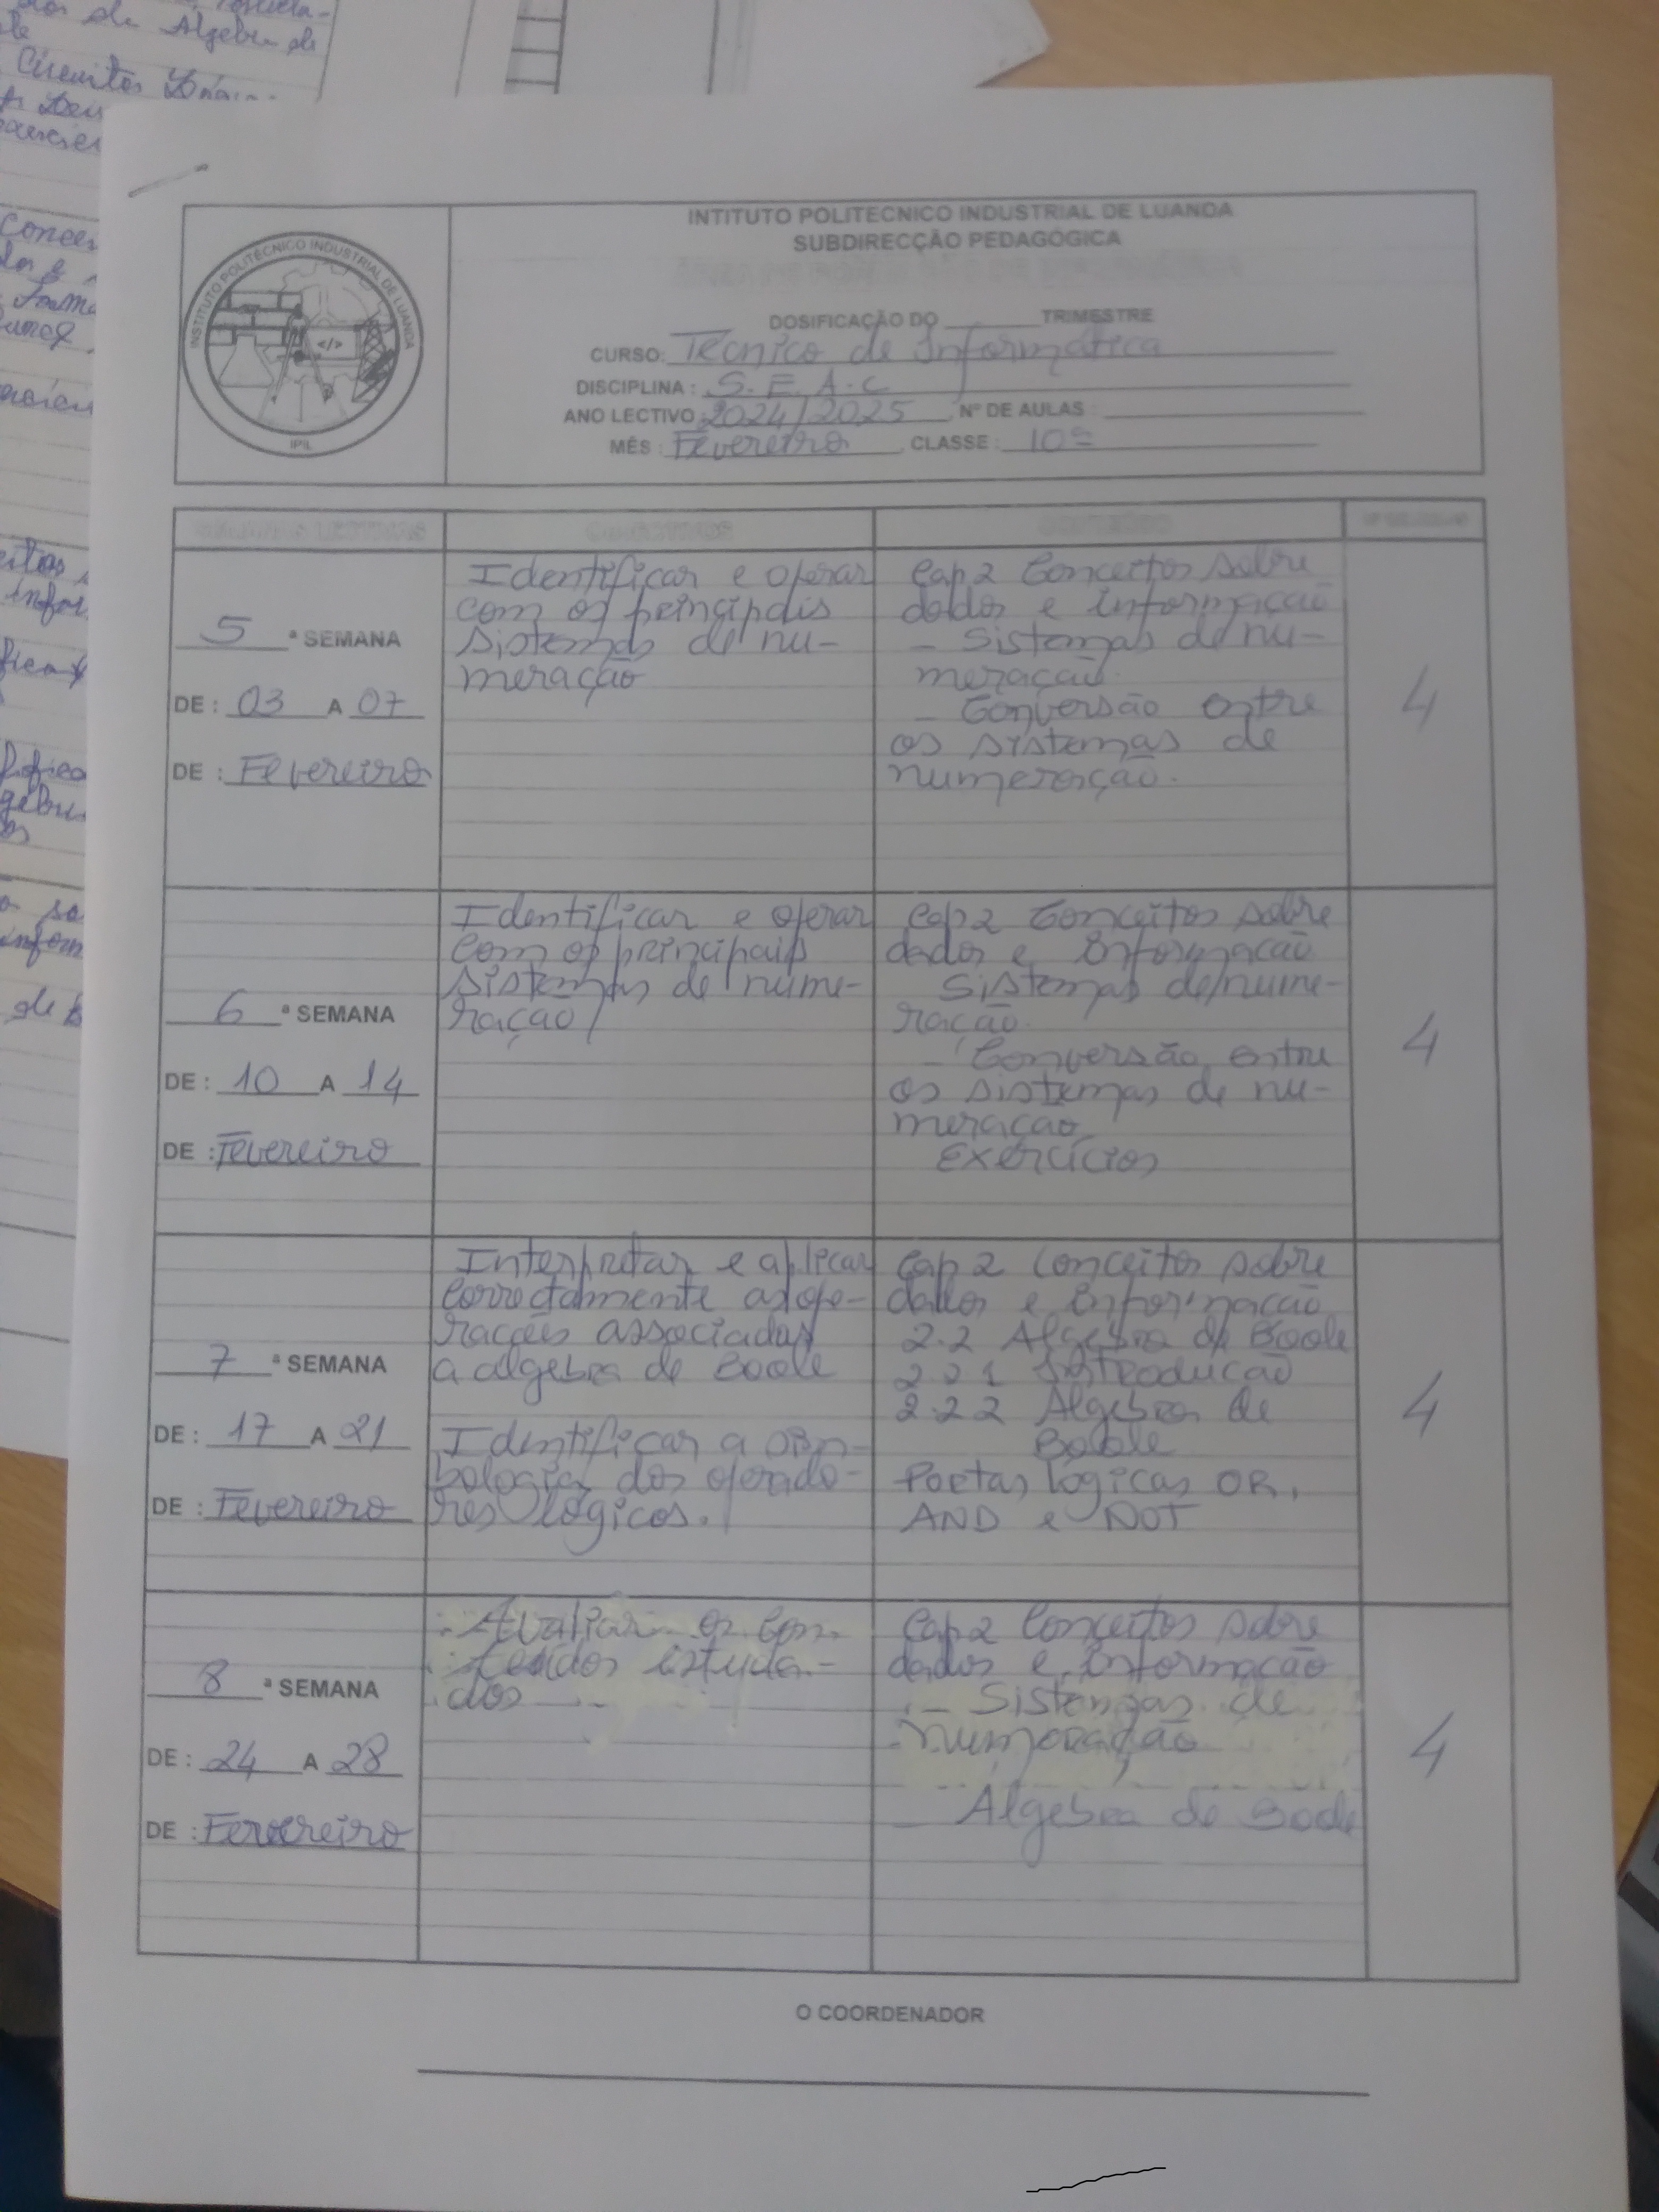 dos de Algebra de
Circuitos
INTITUTO POLITECNICO INDUSTRIAL DE LUANDA
SUBDIRECÇÃO PEDAGÓGICA
INSTITUTO POLITÉCNICO INDUSTRIAL DE LUANDA
</>
IPIL
DOSIFICAÇÃO DO ______ TRIMESTRE
CURSO: Técnico de Informática
DISCIPLINA : S.E.A.C
ANO LECTIVO : 2024/2025 Nº DE AULAS :
MÊS : Fevereiro CLASSE : 10ª
5 ª SEMANA
DE : 03 A 07
DE : Fevereiro
Identificar e operar
com os principais
sistemas de nu-
meração
Cap 2 Conceitos sobre
dados e informação
- Sistemas de nu-
meração.
- Conversão entre
os sistemas de
numeração.
4
6 ª SEMANA
DE : 10 A 14
DE : Fevereiro
Identificar e operar
com os principais
sistemas de nume-
ração
Cap 2 Conceitos sobre
dados e Informação
Sistemas de nume-
ração.
- Conversão entre
os sistemas de nu-
meração
Exercícios
4
7 ª SEMANA
DE : 17 A 21
DE : Fevereiro
Interpretar e aplicar
correctamente as ope-
rações associadas
a algebra de Boole
Identificar a
bologia dos operado-
res lógicos.
Cap 2 Conceitos sobre
dados e Informação
2.2 Algebra de Boole
2.2.1 Introdução
2.2.2 Algebra de
Boole
Portas lógicas OR,
AND e NOT
4
8 ª SEMANA
DE : 24 A 28
DE : Fevereiro
Avaliar os con-
teúdos estuda-
dos
Cap 2 Conceitos sobre
dados e Informação
- Sistemas de
numeração
- Algebra de Boole
4
O COORDENADOR